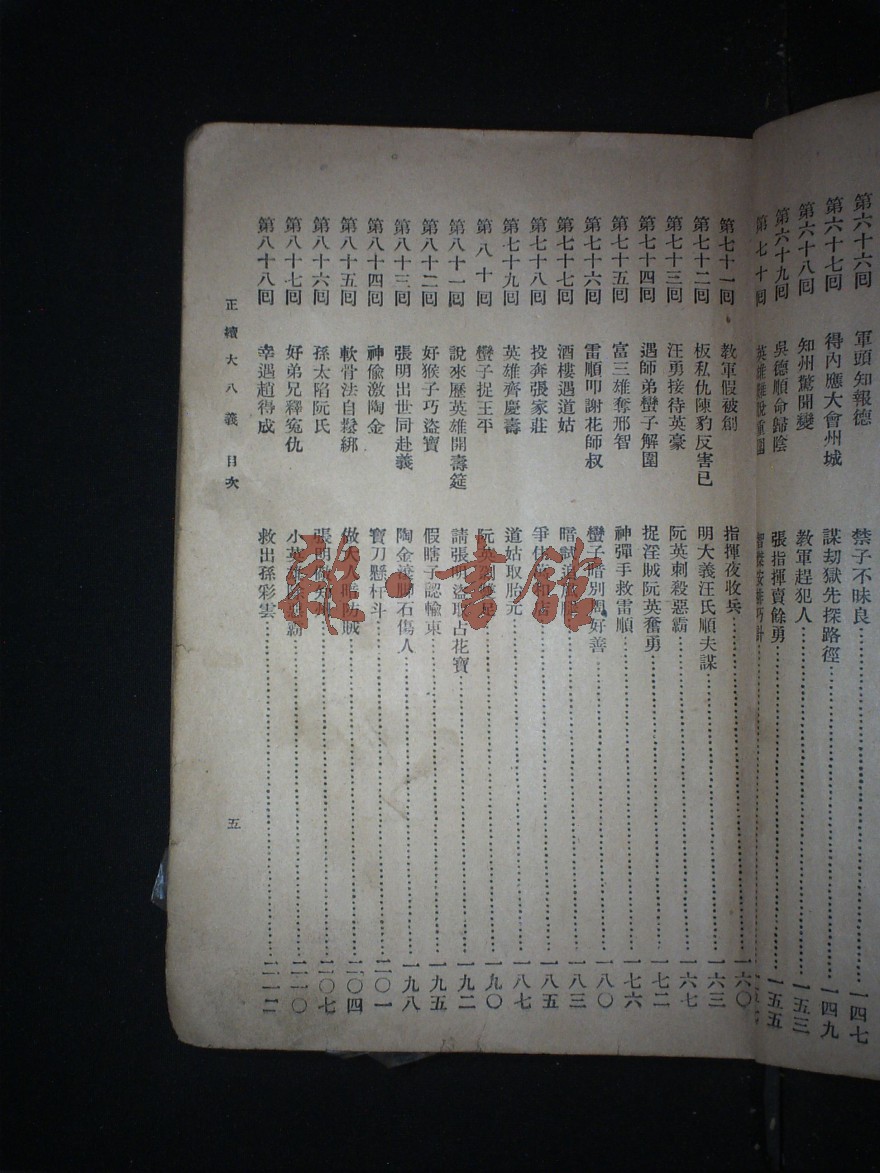 第六十六囘 軍頭知報德 禁子不昧良 一四七
第六十七囘 得內應大會州城 謀劫獄先探路徑 一四九
第六十八囘 知州驚開變 教軍趕犯人 一五三
第六十九囘 吳德順命歸陰 張指揮賣餘勇 一五五
第七十囘
第七十一囘 教軍假被創 指揮夜收兵 一六〇
第七十二囘 板私仇陳豹反害已 明大義汪氏順夫謀 一六三
第七十三囘 汪勇接待英豪 阮英刺殺惡霸 一六七
第七十四囘 遇師弟蠻子解圍 捉淫賊阮英奮勇 一七二
第七十五囘 富三雄奪邢智 神彈手救雷順 一七六
第七十六囘 雷順叩謝花師叔 蠻子暗別 好善 一八〇
第七十七囘 酒樓遇道姑 一八三
第七十八囘 投奔張家莊 一八五
第七十九囘 英雄齊慶壽 道姑取胎元 一八七
第八十囘 蠻子捉王平 一九〇
第八十一囘 說來歷英雄開壽筵 請張明盜取占花寶 一九二
第八十二囘 好猴子巧盜寶 假瞎子認輸東 一九五
第八十三囘 張明出世同赴義 陶金 石傷人 一九八
第八十四囘 神偷激陶金 寶刀懸杆斗 二〇一
第八十五囘 軟骨法自鬆綁 賊 二〇四
第八十六囘 孫太陷阮氏 張明 二〇七
第八十七囘 好弟兄釋冤仇 小英雄 霸 二一〇
第八十八囘 幸遇趙得成 救出孫彩雲 二一二
正續大八義 目次
五
雜·書館